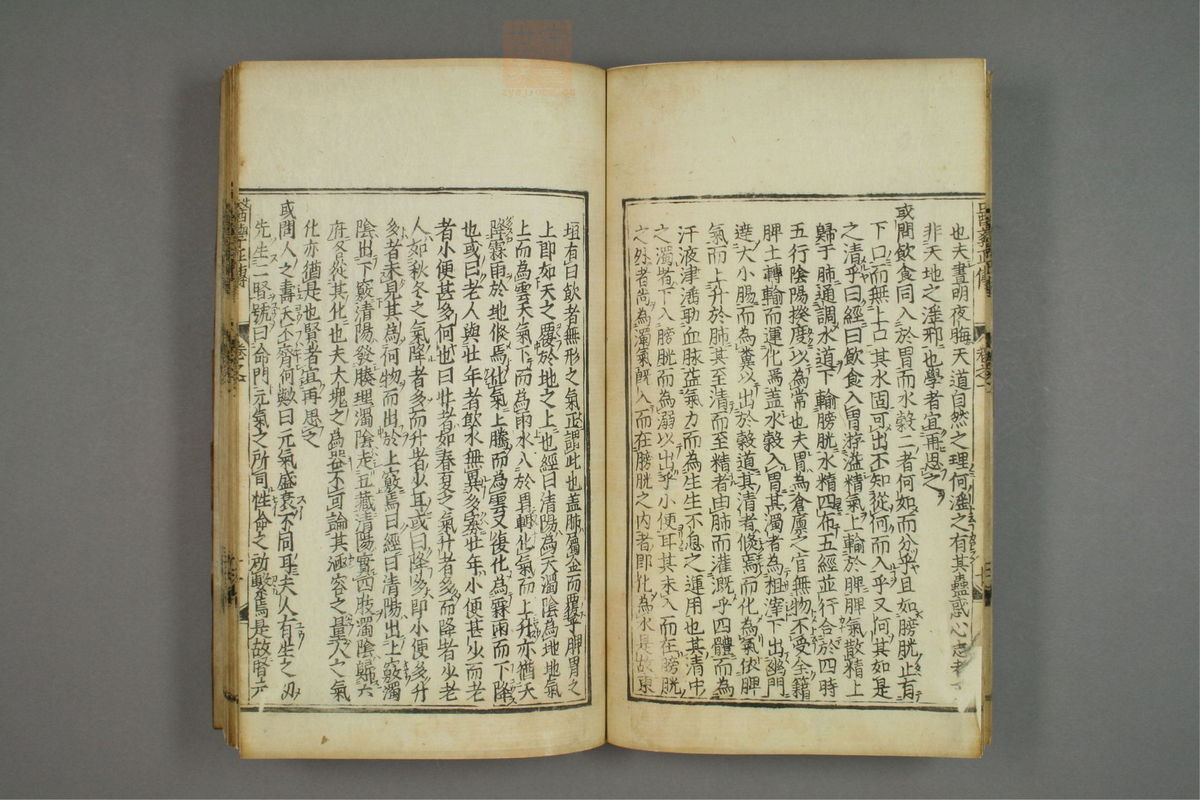 也夫晝明夜晦天道自然之理何滛之有其蠱惑心志者
非天地之滛邪也學者宜再思之
或問飲食同入於胃而水穀二者何如而分乎且如膀胱止有
下口而無上口其水固可出不知從何而入乎又何其如是
之清乎曰經曰飲食入胃游溢精氣上輸於脾脾氣散精上
歸于肺通調水道下輸膀胱水精四布五經並行合於四時
五行陰陽揆度以為常也夫胃為倉廪之官無物不受全籍
脾土轉輸而運化焉盖水穀入胃其濁者為粗滓下出幽門
達大小腸而為糞以出於穀道其清者倐焉而化為氣依脾
氣而上升於肺其至清而至精者由肺而灌溉乎四體而為
汗液津涶助血脉益氣力而為生生不息之運用也其清中
之濁者下入膀胱而為溺以出乎小便耳其未入而在膀胱
之外者尚為濁氣旣入而在膀胱之内者即化為水是故東
垣有曰飲者無形之氣正謂此也盖肺屬金而覆乎脾胃之
上即如天之覆於地之上也經曰清陽為天濁陰為地地氣
上而為雲天氣下而為雨水入於胃轉化氣而上升亦猶天
降霖雨於地倐焉化氣上騰而為雲又復化為霖雨而下降
也或曰老人與壮年者飲水無異多寡壮年小便甚少而老
者小便甚多何也曰壮者如春夏之氣升者多而降者少老
人如秋冬之氣降者多而升者少耳或曰降多即小便多升
多者未見其為何物而出於上竅焉曰經曰清陽出上竅濁
陰出下竅清陽發腠理濁陰走五藏清陽實四肢濁陰歸六
府各從其化也夫大塊之為器不可論其涵容之量人之氣
化亦猶是也賢者宜再思之
或問人之壽夭不齊何歟曰元氣盛衰不同耳夫人有生之初
先生二腎號曰命門元氣之所司性命之所繫焉是故腎元
醫學正傳
卷之一